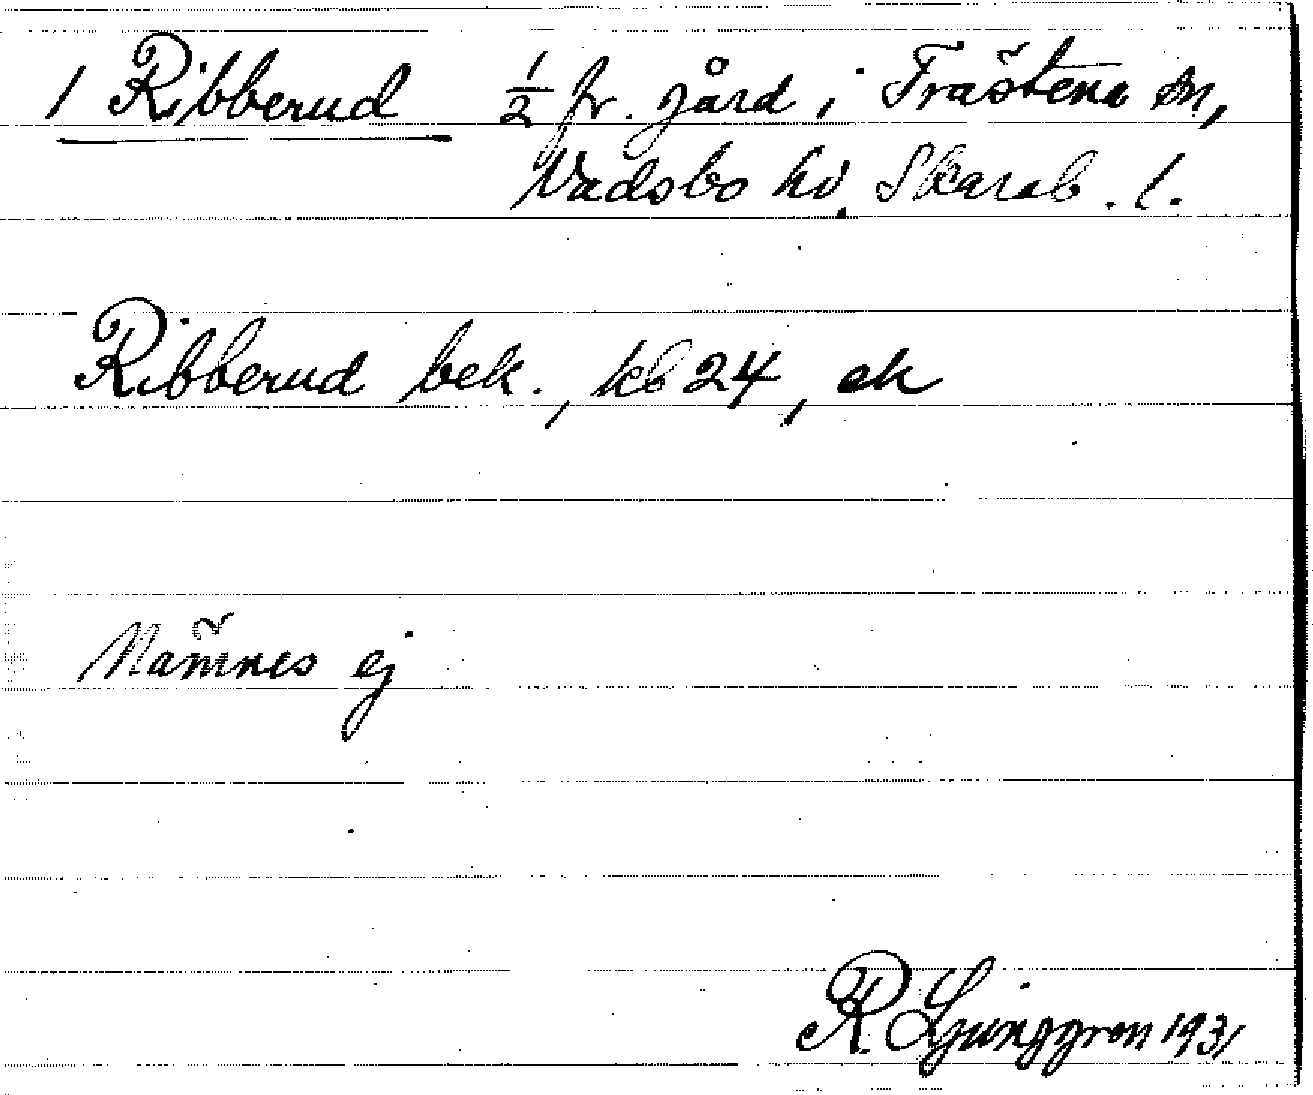 1 Ribberud ½ fr. gård i Trästena sn,
Vadsbo hd. Skarab. l.
Ribberud bek., kb 24, ek
Nämnes ej
R Ljunggren 1931